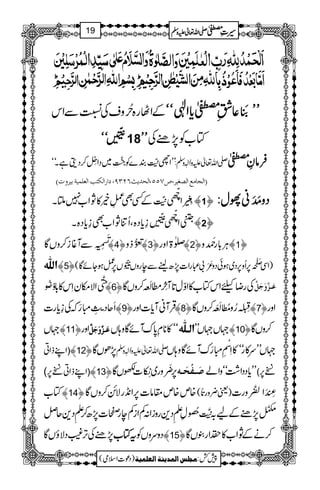 سیرتِ مصطفیٰ صلی اللہ تعالیٰ علیہ وسلم
19
اَلْحَمْدُ لِلّٰهِ رَبِّ الْعٰلَمِیْنَ وَ الصَّلٰوةُ وَ السَّلَامُ عَلٰی سَیِّدِ الْمُرْسَلِیْنَ
اَمَّا بَعْدُ فَاَعُوْذُ بِاللّٰهِ مِنَ الشَّیْطٰنِ الرَّجِیْمِ بِسْمِ اللّٰهِ الرَّحْمٰنِ الرَّحِیْمِ
”بنا عاشقِ مصطفیٰ یا الٰہی“ کے اٹھارہ حُروف کی نسبت سے اس
کتاب کو پڑھنے کی ”18 نیّتیں“
فرمانِ مصطفیٰ صلی اللہ تعالیٰ علیہ واٰلہ وسلم: ”اچھی نیّت بندے کو جنّت میں داخِل کر دیتی ہے۔“
(الجامع الصغیر،ص۵۵۷،الحدیث۹۳۲۶، دارالکتب العلمیۃ بیروت)
دو مَدَنی پھول: {1} بِغیر اچھی نیّت کے کسی بھی عملِ خیر کا ثواب نہیں ملتا۔
{2} جتنی اچھی نیّتیں زیادہ، اُتنا ثواب بھی زیادہ۔
{1} ہر بار حمد و {2} صلوٰۃ اور {3} تعوُّذ و {4} تسمیہ سے آغاز کروں گا
(اسی صفحہ پر اُوپر دی ہوئی دو عَرَبی عبارات پڑھ لینے سے چاروں نیّتوں پر عمل ہو جائے گا) {5} اللہ
عَزَّوَجَلَّ کی رِضا کیلئے اس کتاب کا اوّل تا آخر مطالَعہ کروں گا {6} حتَّی الامکان اِس کا باوُضو
اور {7} قبلہ رُو مطالَعہ کروں گا {8} قرآنی آیات اور {9} احادیثِ مبارکہ کی زیارت
کروں گا {10} جہاں جہاں ”اللہ“ کا نام پاک آئے گا وہاں عَزَّوَجَلَّ اور {11} جہاں
جہاں ”سرکار“ کا اسمِ مبارَک آئے گا وہاں صلی اللہ تعالیٰ علیہ واٰلہ وسلم پڑھوں گا {12} (اپنے ذاتی
نسخے پر) ”یادداشت“ والے صفحہ پر ضَروری نکات لکھوں گا {13} (اپنے ذاتی نسخے پر)
عِندَ الضَّرورت (یعنی ضرورتاً) خاص خاص مقامات پر انڈر لائن کروں گا {14} کتاب
مکمّل پڑھنے کے لیے بہ نیّتِ حُصولِ علمِ دین روزانہ کم از کم چار صفحات پڑھ کر علمِ دین حاصل
کرنے کے ثواب کا حقدار بنوں گا {15} دوسروں کو یہ کتاب پڑھنے کی ترغیب دلاؤں گا
پیش کش: مجلس المدینۃ العلمیۃ (دعوتِ اسلامی)